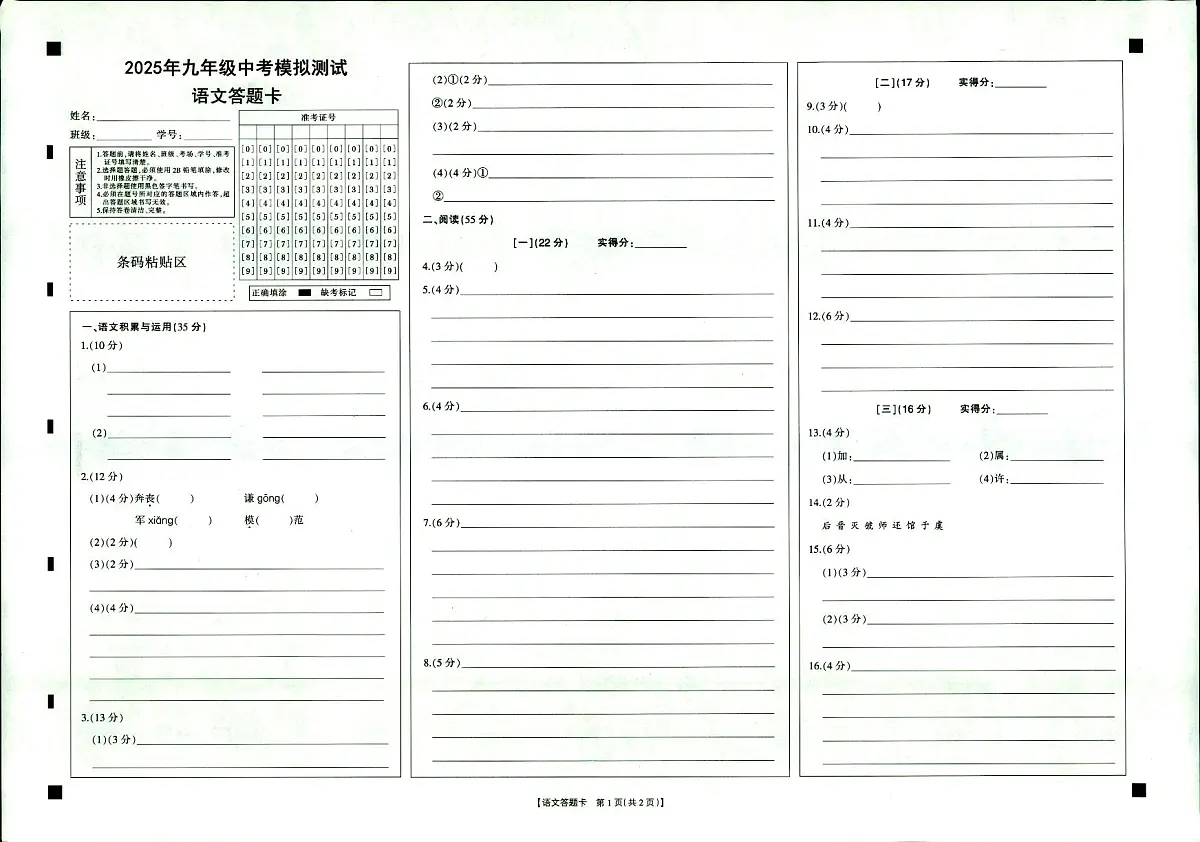 2025年九年级中考模拟测试
语文答题卡
姓名:
班级: 学号:
注意事项
1.答题前,请将姓名、班级、考场、学号、准考
证号填写清楚。
2.选择题答题,必须使用2B铅笔填涂,修改
时用橡皮擦干净。
3.非选择题使用黑色签字笔书写。
4.必须在题号所对应的答题区域内作答,超
出答题区域书写无效。
5.保持答卷清洁、完整。
准考证号
[0] [0] [0] [0] [0] [0] [0] [0] [0]
[1] [1] [1] [1] [1] [1] [1] [1] [1]
[2] [2] [2] [2] [2] [2] [2] [2] [2]
[3] [3] [3] [3] [3] [3] [3] [3] [3]
[4] [4] [4] [4] [4] [4] [4] [4] [4]
[5] [5] [5] [5] [5] [5] [5] [5] [5]
[6] [6] [6] [6] [6] [6] [6] [6] [6]
[7] [7] [7] [7] [7] [7] [7] [7] [7]
[8] [8] [8] [8] [8] [8] [8] [8] [8]
[9] [9] [9] [9] [9] [9] [9] [9] [9]
条码粘贴区
正确填涂 缺考标记
一、语文积累与运用(35分)
1.(10分)
(1)
(2)
2.(12分)
(1)(4分)奔丧( ) 谦gōng( )
军xiǎng( ) 模( )范
(2)(2分)( )
(3)(2分)
(4)(4分)
3.(13分)
(1)(3分)
(2)①(2分)
②(2分)
(3)(2分)
(4)(4分)①
②
二、阅读(55分)
[一](22分) 实得分:
4.(3分)( )
5.(4分)
6.(4分)
7.(6分)
8.(5分)
[二](17分) 实得分:
9.(3分)( )
10.(4分)
11.(4分)
12.(6分)
[三](16分) 实得分:
13.(4分)
(1)加: (2)属:
(3)从: (4)许:
14.(2分)
后晋灭虢师还馆于虞
15.(6分)
(1)(3分)
(2)(3分)
16.(4分)
【语文答题卡 第1页(共2页)】